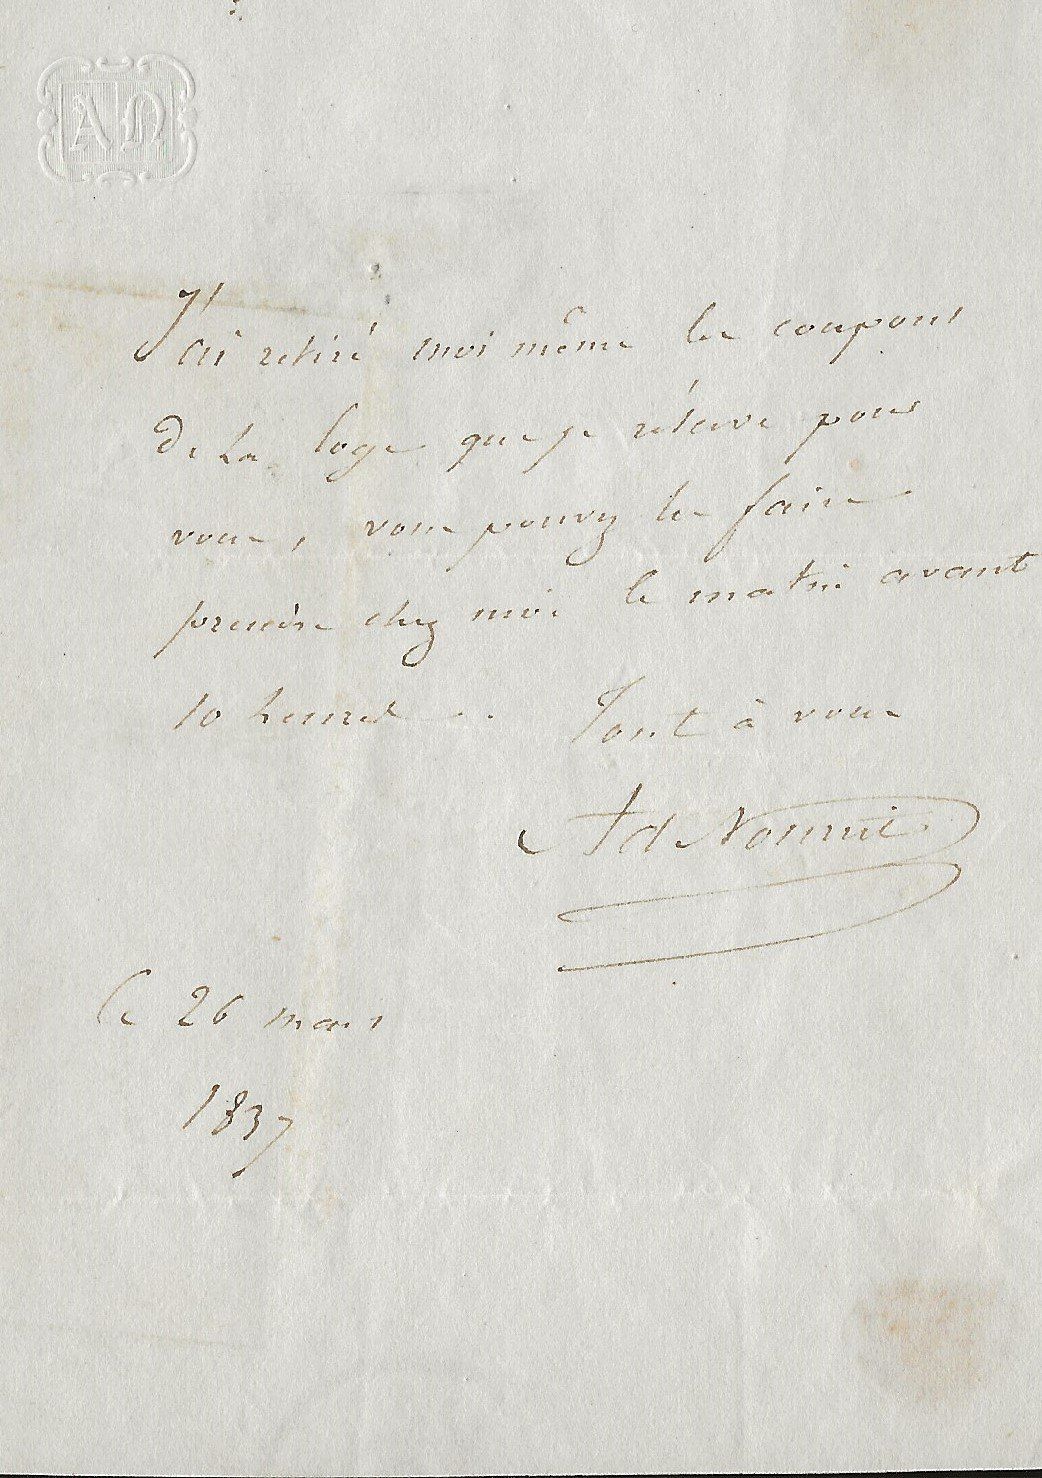 AN
J'ai retiré moi même les coupons
de la loge que je réserve pour
vous, vous pouvez les faire
prendre chez moi le matin avant
10 heures . Tout à vous
Ad Nourrit
Ce 26 mars
1837